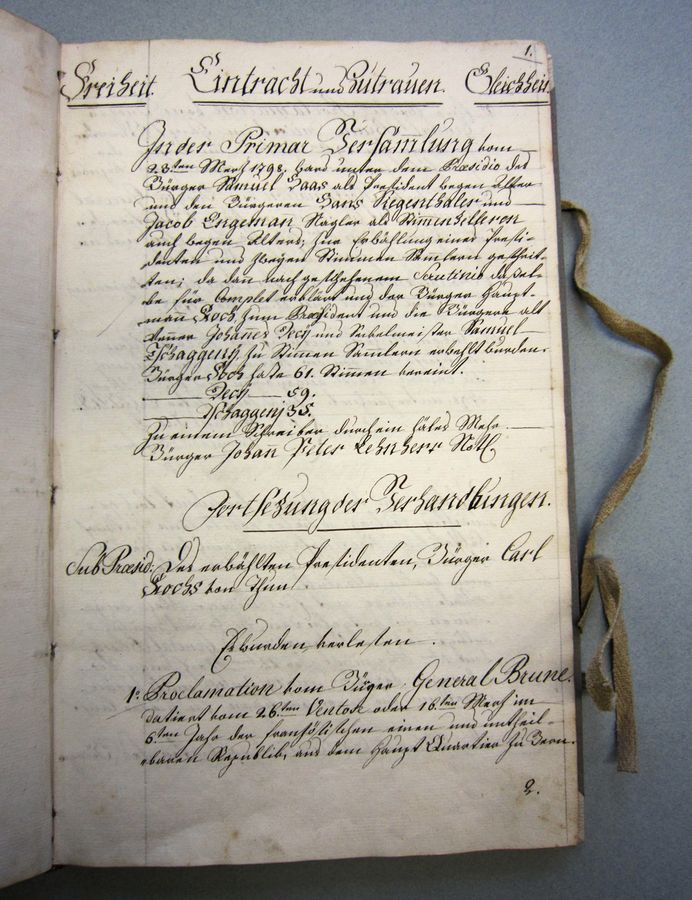 1.
Freiheit. Eintracht und Zutrauen. Gleichheit.
In der Primar Versammlung vom
23.sten Merz 1798, ward unter dem Præsidio des
Bürger Samuel Haas als President wegen Alter
und den Bürgeren Hans Siegenthaler und
Jacob Engeman Nagler als Stimmenzelleren
auch wegen Alters; zur Erwählung eines Presi-
denten und zweyen Stimmen Samleren geschrit-
ten; da dan nach geschehenem Scrutinio dasel-
be für Complet erklärt und der Bürger Haupt-
mann Koch zum Præsident und die Bürgere alt
Venner Johannes Decy und Sekelmeister Samuel
Tschaggeny zu Stimen Samlern erwehlt wurden.
Bürger Koch hate 61. Stimmen vereint.
Decy 59.
Tschaggenj 35.
Zu einem Schreiber durch ein häles Mehr.
Bürger Johan Peter Lehnherr Not.
Fortsetzung der Verhandlungen.
Sub Præsid: Des erwählten Presidenten, Bürger Carl
Kochs von Thun
Es wurden verlesen.
1: Proclamation vom Bürger General Brune.
datiert vom 26.ten Ventos oder 16.ten Merz im
6.ten Jahr der Französischen einen und untheil-
baren Republik, aus dem Haupt Quartier zu Bern.
2.